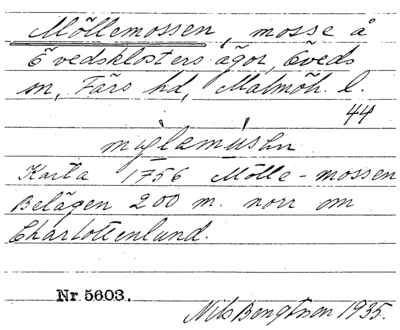 Möllemossen, mosse å
Övedsklosters ägor, Öveds
sn, Färs hd, Malmöh. l.
44
Karta 1756 Mölle-mossen
Belägen 200 m. norr om
Charlottenlund.
Nr 5603.
Nils Bengtsson 1935.